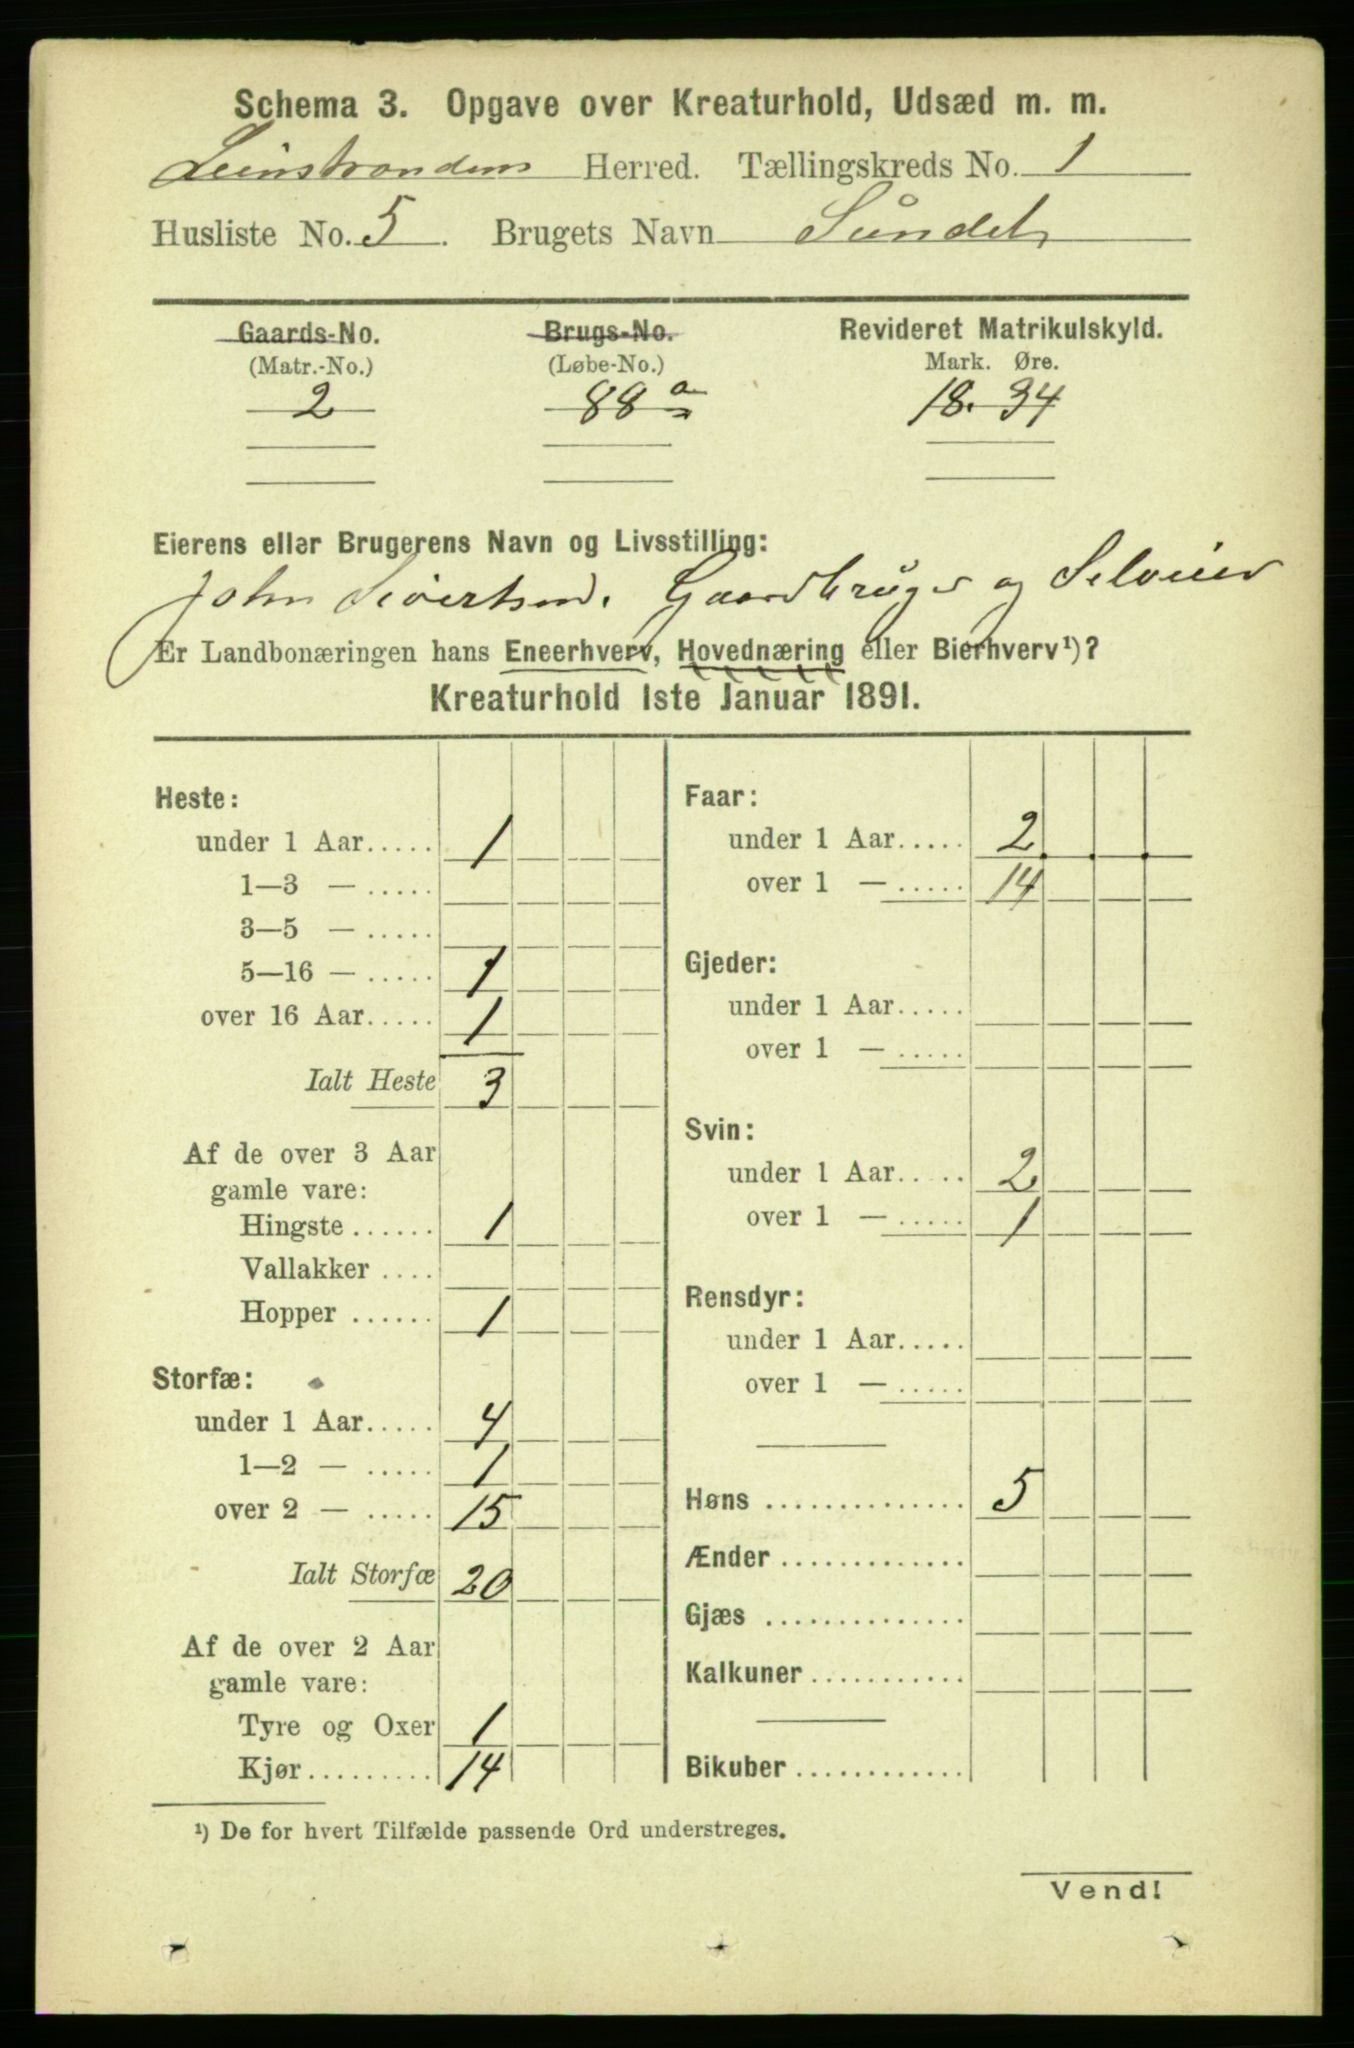 Schema 3. Opgave over Kreaturhold, Udsæd m. m.
Leinstrandens Herred. Tællingskreds No. 1
Husliste No. 5. Brugets Navn Sundet
Gaards-No. Brugs-No. Revideret Matrikulskyld.
(Matr.-No.) (Løbe-No.) Mark. Øre.
2 88 a 18. 34
Eierens eller Brugerens Navn og Livsstilling:
John Sivertsen. Gaardbruger og Selveier
Er Landbonæringen hans Eneerhverv, Hovednæring eller Bierhverv¹)?
Kreaturhold 1ste Januar 1891.
Heste:
under 1 Aar..... 1
1—3 — .....
3—5 — .....
5—16 — ..... 1
over 16 Aar..... 1
Ialt Heste 3
Af de over 3 Aar
gamle vare:
Hingste ...... 1
Vallakker ....
Hopper ...... 1
Storfæ:
under 1 Aar..... 4
1—2 — ..... 1
over 2 — ..... 15
Ialt Storfæ 20
Af de over 2 Aar
gamle vare:
Tyre og Oxer 1
Kjør......... 14
Faar:
under 1 Aar..... 2
over 1 — ..... 14
Gjeder:
under 1 Aar.....
over 1 — .....
Svin:
under 1 Aar..... 2
over 1 — ..... 1
Rensdyr:
under 1 Aar.....
over 1 — .....
Høns .............. 5
Ænder .............
Gjæs ..............
Kalkuner ...........
Bikuber ............
¹) De for hvert Tilfælde passende Ord understreges.
Vend!